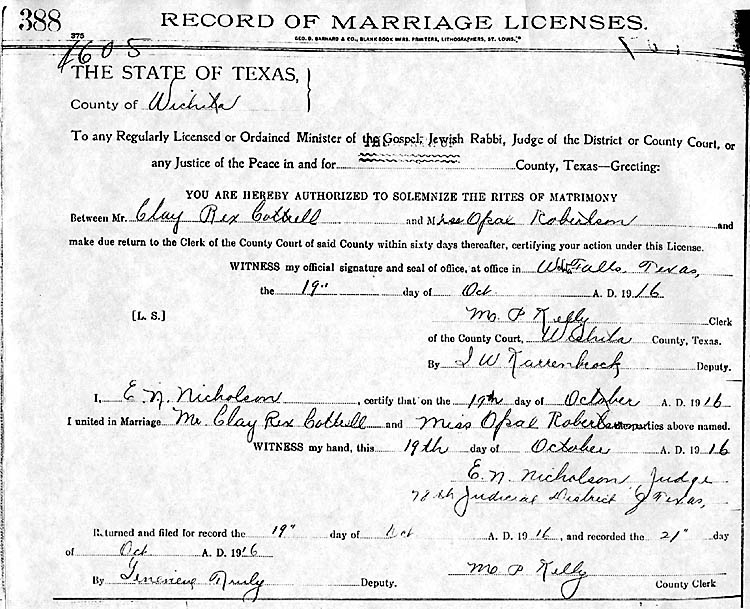 388 RECORD OF MARRIAGE LICENSES.
375 GEO. D. BARNARD & CO., BLANK BOOK MFRS. PRINTERS, LITHOGRAPHERS, ST. LOUIS.
1605
THE STATE OF TEXAS,
County of Wichita
To any Regularly Licensed or Ordained Minister of the Gospel, Jewish Rabbi, Judge of the District or County Court, or
any Justice of the Peace in and for County, Texas—Greeting:
YOU ARE HEREBY AUTHORIZED TO SOLEMNIZE THE RITES OF MATRIMONY
Between Mr. Clay Rex Cottrell and Miss Opal Robertson and
make due return to the Clerk of the County Court of said County within sixty days thereafter, certifying your action under this License.
WITNESS my official signature and seal of office, at office in Falls, Texas,
the 19" day of Oct A. D. 1916
[L. S.] M. P Kelly Clerk
of the County Court, Wichita County, Texas.
By J W Karrenbrock Deputy.
I, E. N. Nicholson, certify that on the 19th day of October A. D. 1916
I united in Marriage Mr. Clay Rex Cottrell and Miss Opal Robertson parties above named.
WITNESS my hand, this 19th day of October A. D. 1916
E. N. Nicholson Judge
78th Judicial District of Texas,
Returned and filed for record the 19" day of Oct A. D. 1916, and recorded the 21" day
of Oct A. D. 1916
By Genevieve Truly Deputy. M. P Kelly County Clerk